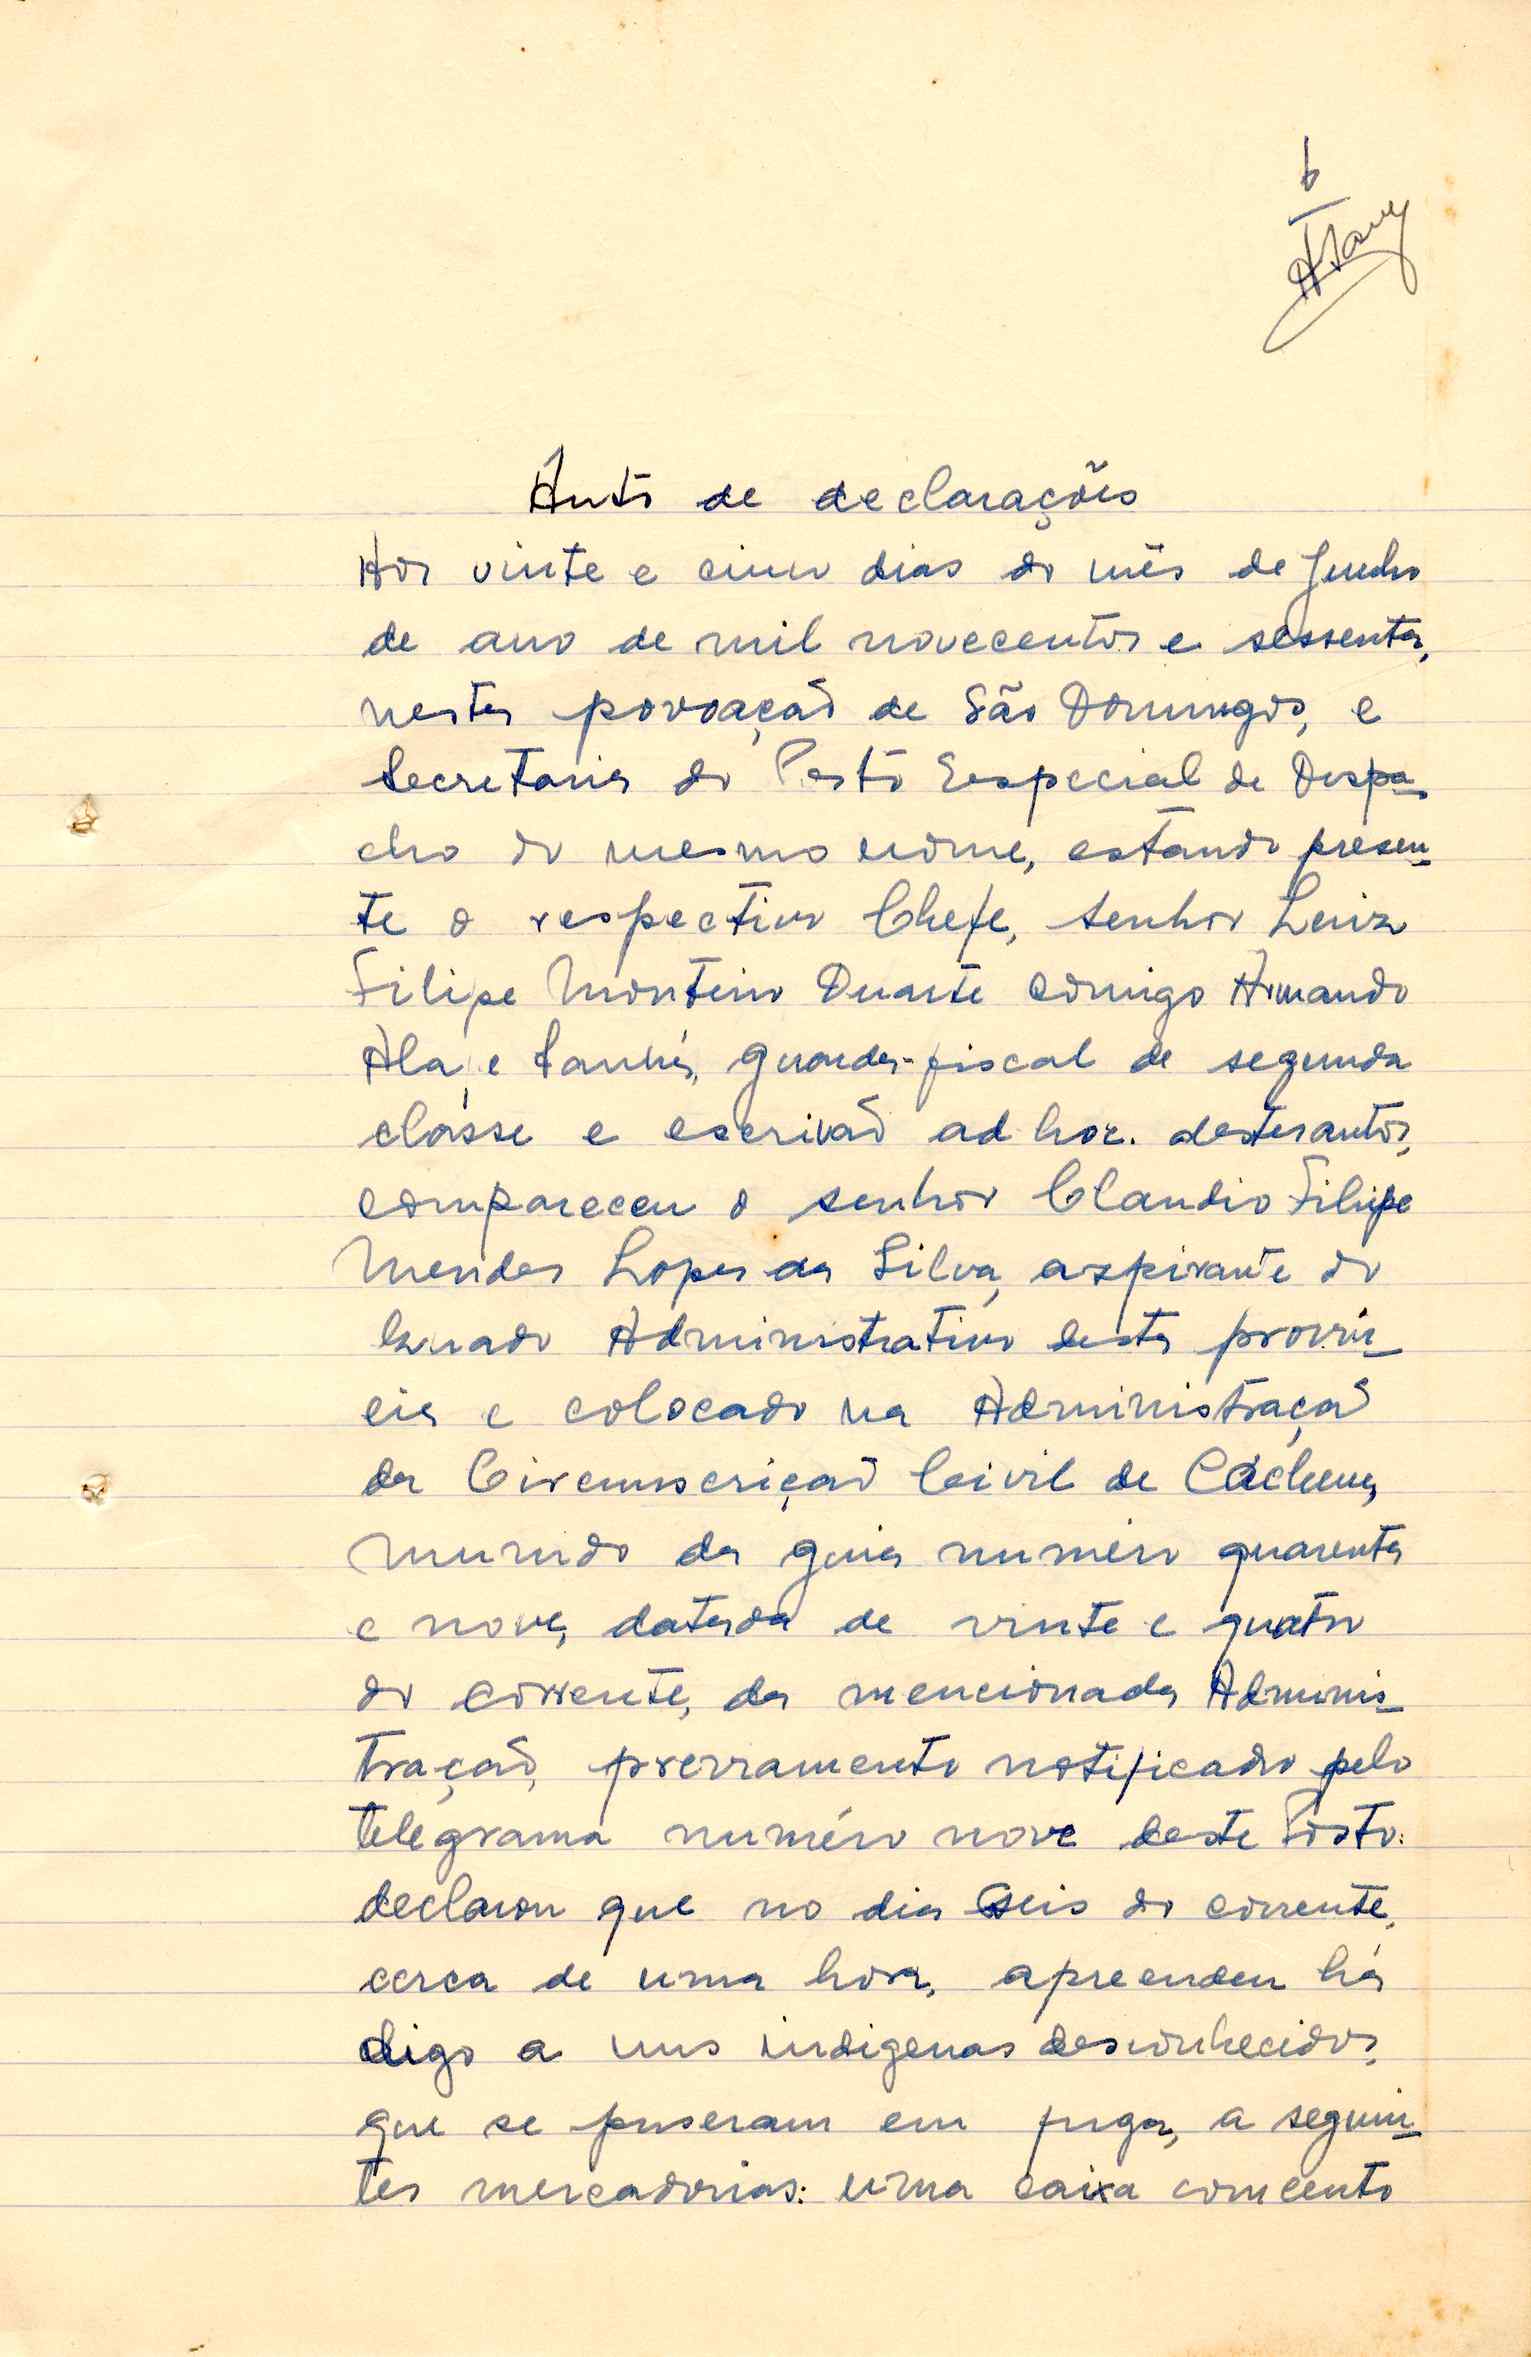 6
Auto de declarações
Aos vinte e cinco dias do mês de Junho
de ano de mil novecentos e sessenta,
nesta povoação de São Domingos, e
Secretaria do Posto Especial de Despa-
cho do mesmo nome, estando presen-
te o respectivo Chefe, senhor Luiz
Filipe Monteiro Duarte comigo Armando
Ala e guarda-fiscal de segunda
classe e escrivão ad hoc. destes autos,
compareceu o senhor Claudio Filipe
Mendes Lopes da Silva, aspirante do
Quado Administrativo desta provín-
cia e colocado na Administração
da Circunscrição Civil de Cacheu,
munido da guia numéro quarenta
e nove, datada de vinte e quatro
do corrente, da mencionada Adminis-
tração, previamente notificado pelo
telégrama numéro nove deste Posto:
declarou que no dia seis do corrente,
cerca de uma hora, apreendeu há
digo a uns indigenas desconhecidos,
que se puseram em fuga, a seguin-
tes mercadorias: uma caixa com cento